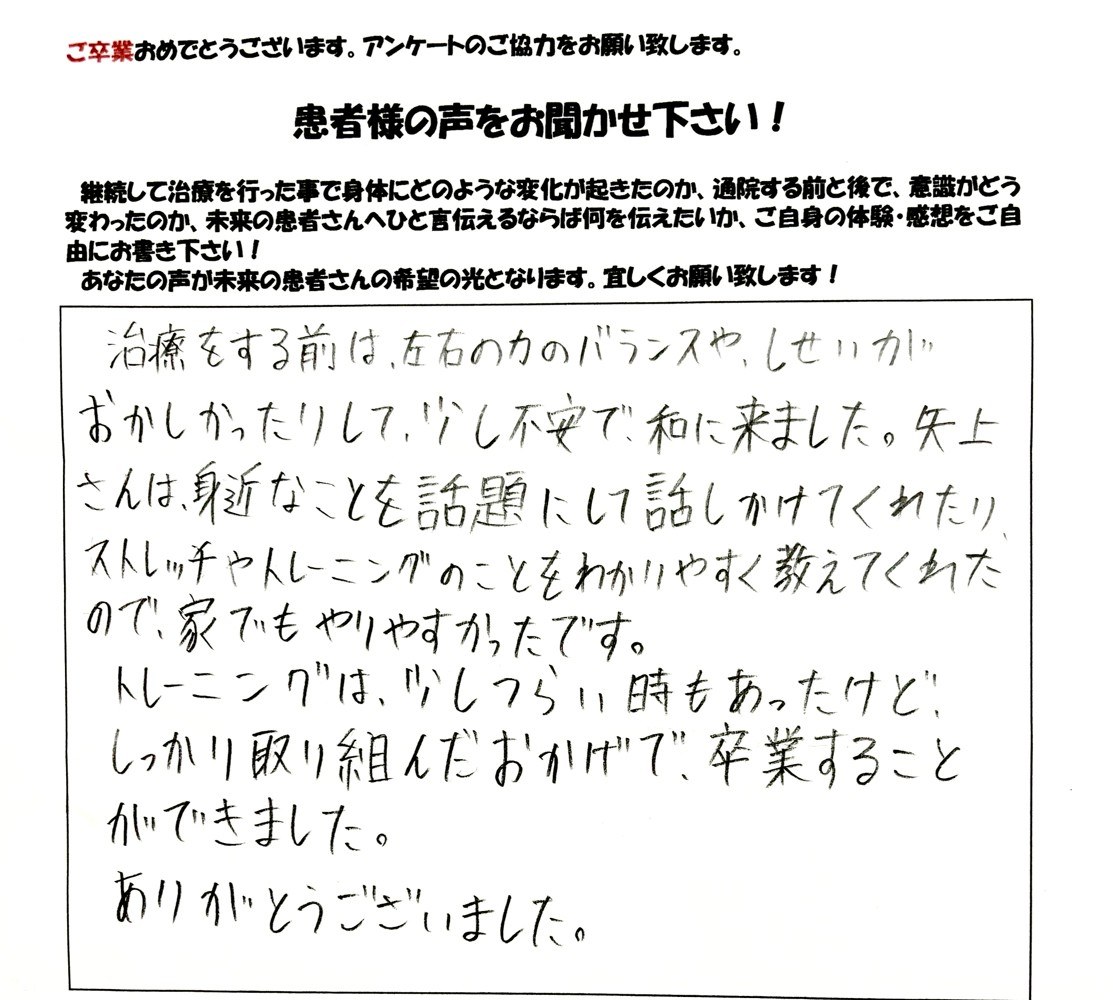 ご卒業おめでとうございます。アンケートのご協力をお願い致します。
患者様の声をお聞かせ下さい！
継続して治療を行った事で身体にどのような変化が起きたのか、通院する前と後で、意識がどう
変わったのか、未来の患者さんへひと言伝えるならば何を伝えたいか、ご自身の体験・感想をご自
由にお書き下さい！
あなたの声が未来の患者さんの希望の光となります。宜しくお願い致します！
治療をする前は、左右の力のバランスや、しせいが
おかしかったりして、少し不安で、和に来ました。矢上
さんは、身近なことを話題にして話しかけてくれたり、
ストレッチやトレーニングのことをわかりやすく教えてくれた
ので、家でもやりやすかったです。
トレーニングは、少しつらい時もあったけど、
しっかり取り組んだおかげで、卒業すること
ができました。
ありがとうございました。